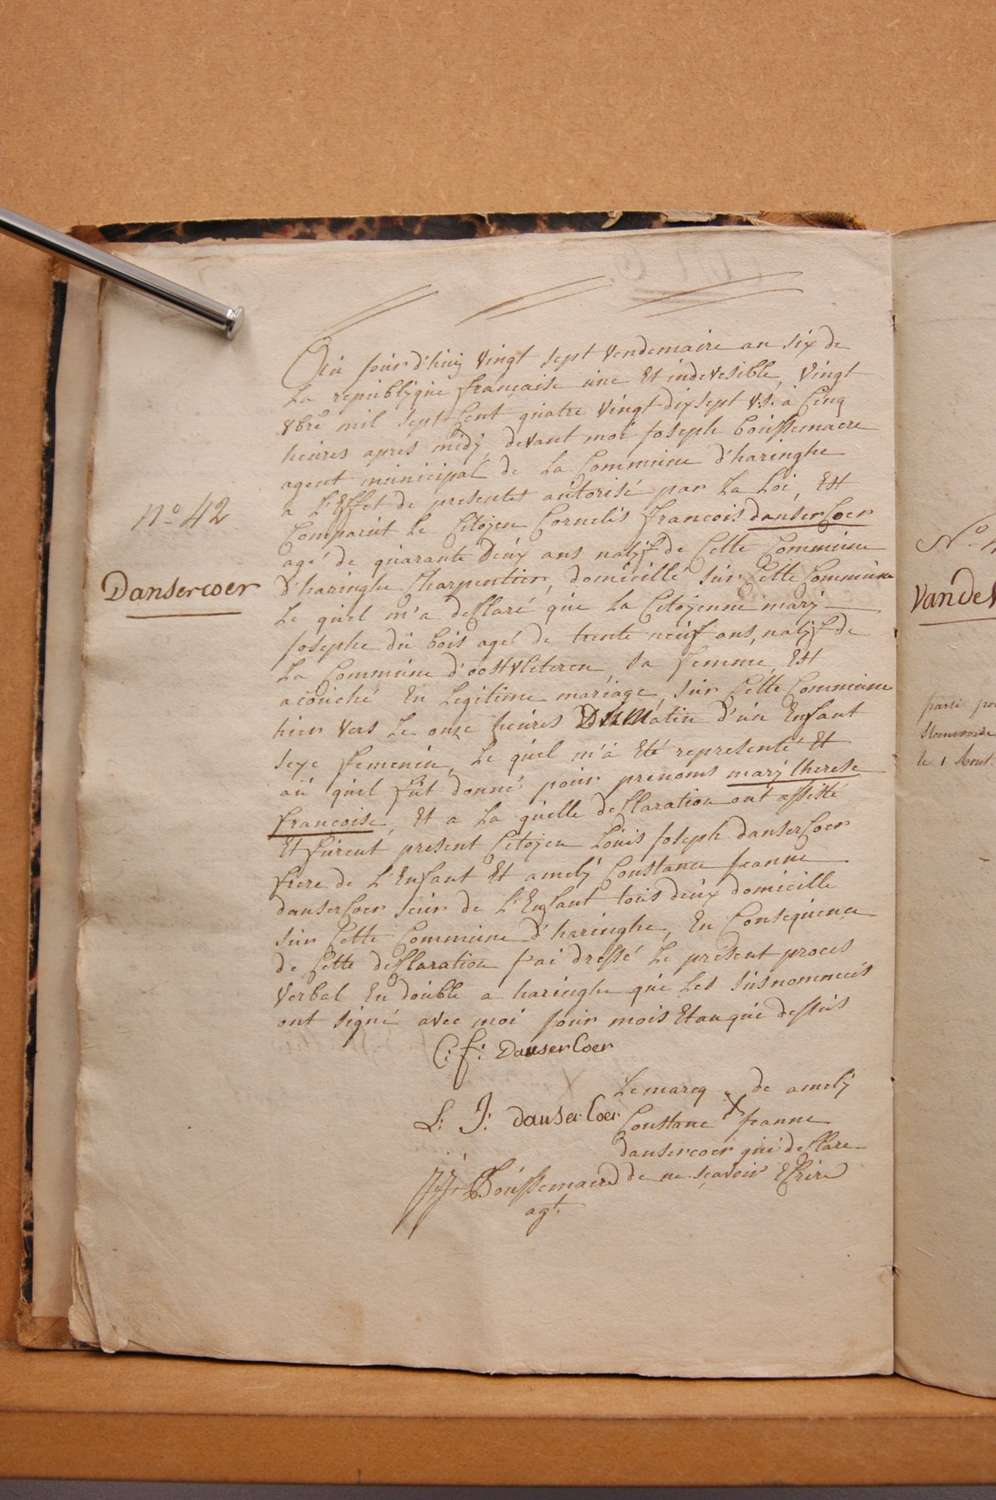 Ciu jourd'huij vingt sept vendemaire an six de
La republique française une Et indevesible, vingt
8bre mil sept Cent quatre vingt dix sept v.s. a Cinq
heures aprés midy, devant moi joseph bousfemaere
agent municipal de La Commune d'haringhe
a L'Effet de presentes autorisé par La Loi, Est
Comparut Le Citojen Cornelis francois danserCoer
agé de quarante deux ans natif de Cette Commune
d'haringhe Charpentier, domicille sur Cette Commune
Le quel m'a desslaré que La Citojenne marij
josephe du bois agé de trente neuf ans, natif de
La Commune d'oostvleteren, sa femme, Est
acouché En Legitime mariage, sur Cette Commune
hier vers Le onze heures Du Matin d'un Enfant
sexe femenin, Le quel m'a été representé Et
au quel fut donné pour prenoms marij therese
francoise, Et a La quelle desslaration ont assisté
Et furent present Citojen Louis joseph danserCoer
frere de L'Enfant Et amelij Constance jeanne
danserCoer seur de L'Enfant tous deux domicille
sur Cette Commune d'haringhe, En Consequence
de Cette desslaration j'ai dressé Le present proces
verbal En double a haringhe que Les susnommeés
ont signé avec moi jour mois Et an que dessus
C: f: DanserCoer
Lemarcq X de amelij
L: J: danserCoer Constance jeanne
dansercoer qui desslare
Bousfemaere de ne sçavoir Ecrire
agt.
N.o 42
Dansercoer
N.o
Vande
le 1